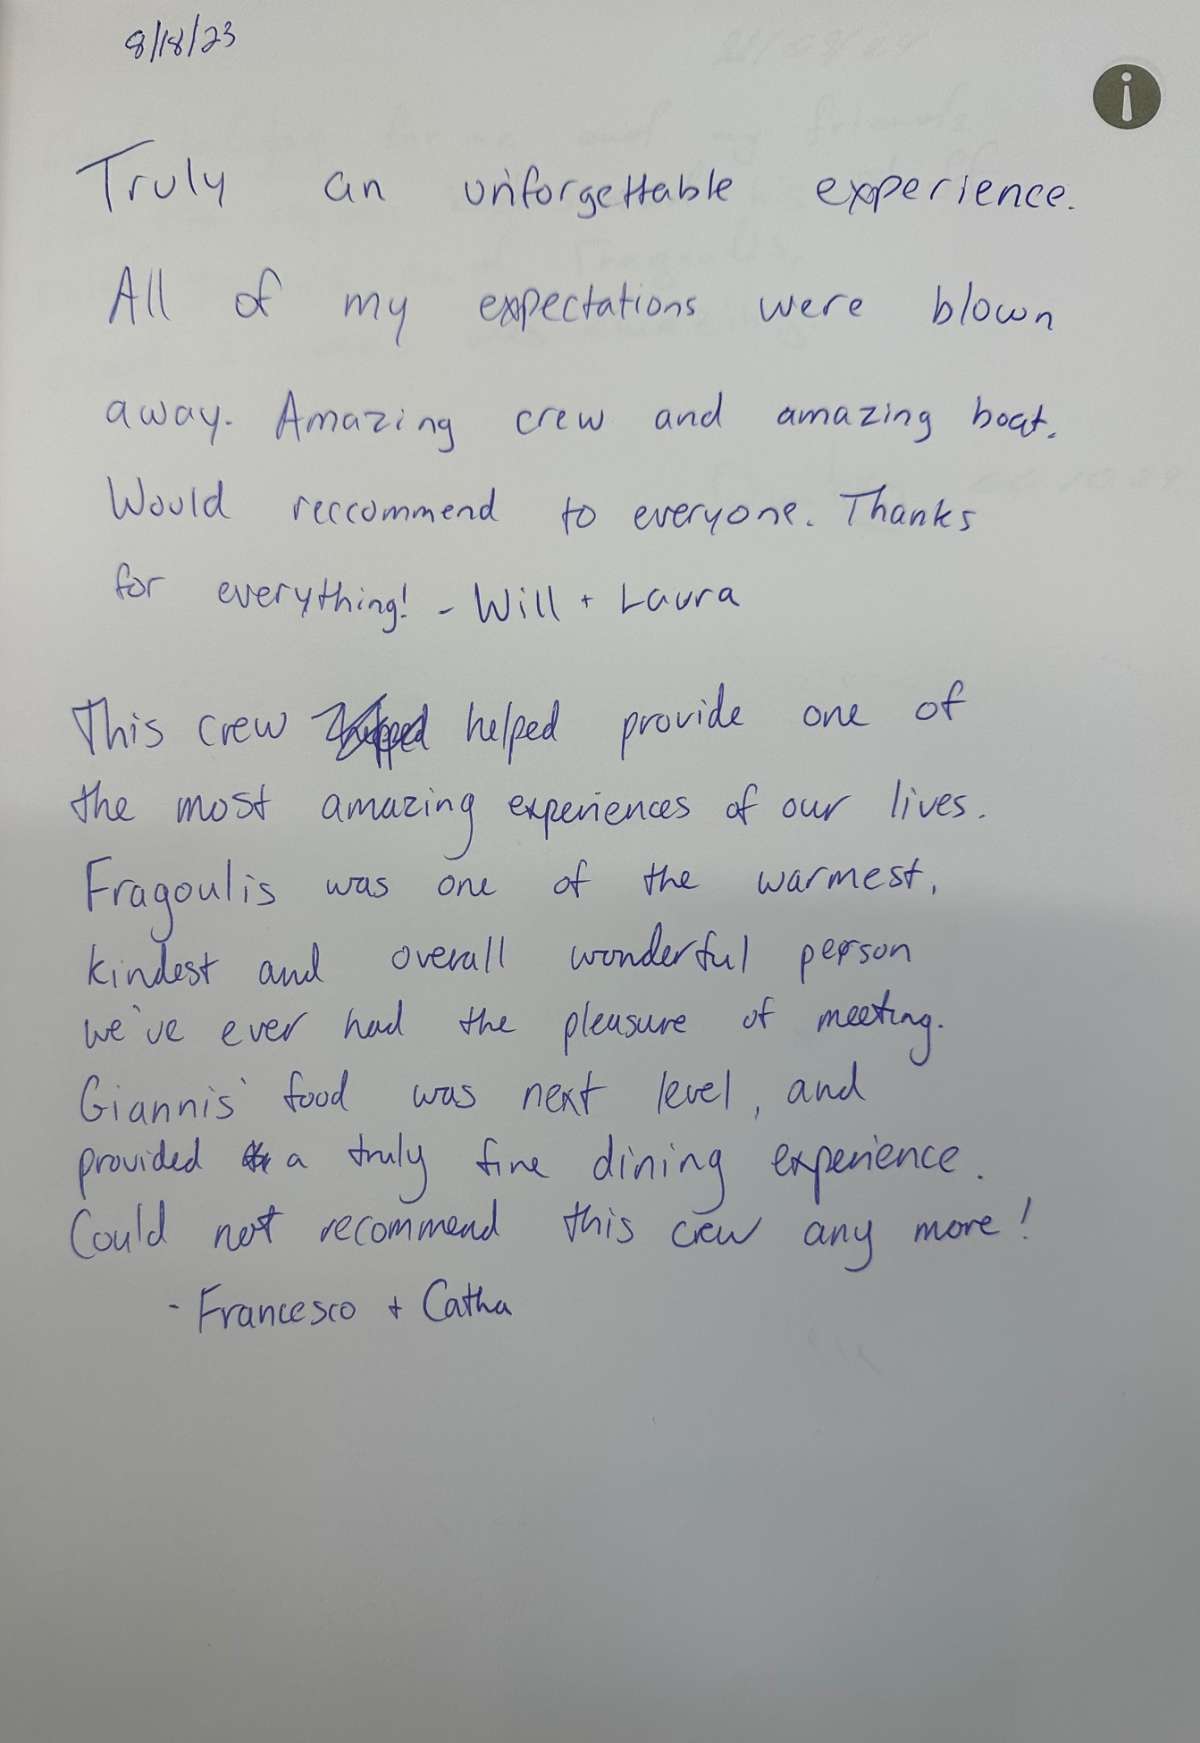 8/18/23
Truly an unforgettable experience.
All of my expectations were blown
away. Amazing crew and amazing boat.
Would reccommend to everyone. Thanks
for everything! - Will + Laura
This crew helped provide one of
the most amazing experiences of our lives.
Fragoulis was one of the warmest,
kindest and overall wonderful person
we've ever had the pleasure of meeting.
Giannis' food was next level, and
provided a truly fine dining experience.
Could not recommend this crew any more!
- Francesco + Catha